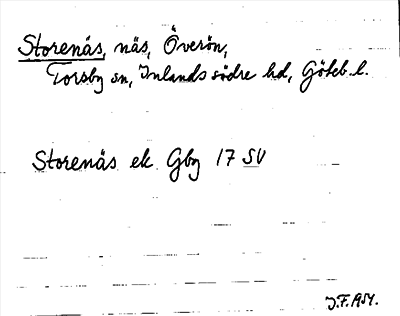 Storenäs, näs, Överön,
Torsby sn, Inlands södre hd, Göteb. l.
Storenäs ek Gbg 17 SV
J.F. 1954.